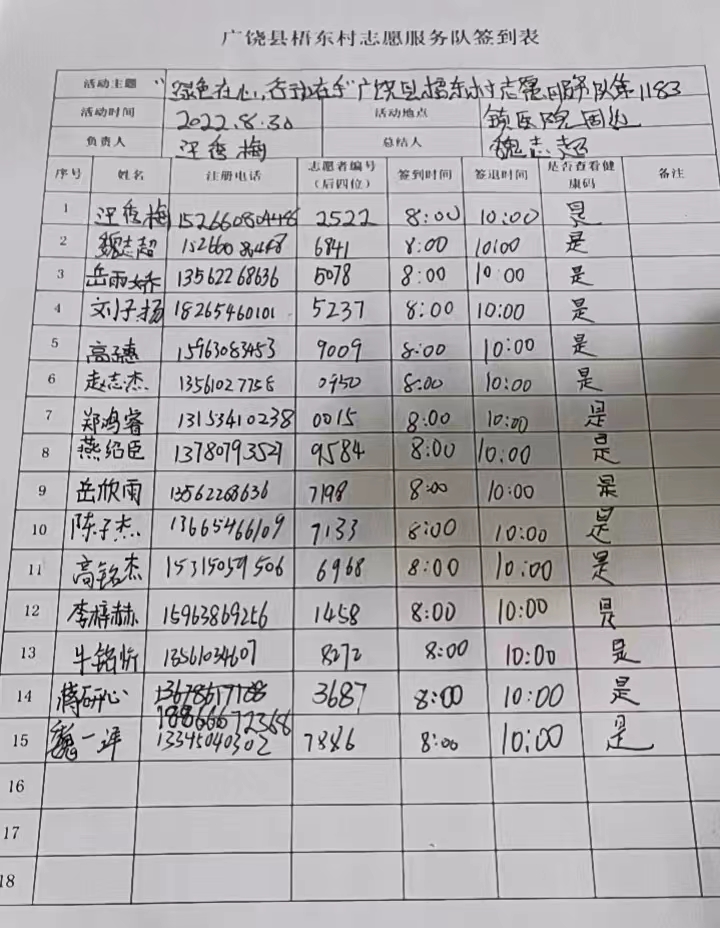 广饶县梧东村志愿服务队签到表
活动主题 "绿色在心,行动在手"广饶县梧东村志愿服务队第1183
活动时间 2022.8.30 活动地点 镇医院周边
负责人 汪秀梅 总结人 魏志超
序号 姓名 注册电话 志愿者编号(后四位) 签到时间 签退时间 是否查看健康码 备注
1 汪秀梅 15266080448 2522 8:00 10:00 是
2 魏志超 15266080448 6841 8:00 10:00 是
3 岳雨娇 13562268636 5078 8:00 10:00 是
4 刘子扬 18265460101 5237 8:00 10:00 是
5 高子惠 15963083453 9009 8:00 10:00 是
6 赵志杰 13561027758 0950 8:00 10:00 是
7 郑鸿睿 13153410238 0015 8:00 10:00 是
8 燕绍臣 13780793527 9584 8:00 10:00 是
9 岳欣雨 13562268636 7198 8:00 10:00 是
10 陈子杰 13665466109 7133 8:00 10:00 是
11 高铭杰 15315059506 6968 8:00 10:00 是
12 李梓赫 15963869256 1458 8:00 10:00 是
13 牛铭忻 13561034607 8272 8:00 10:00 是
14 蒋研心 3687 8:00 10:00 是
18866672368
15 魏一泽 13345040302 7886 8:00 10:00 是
16
17
18